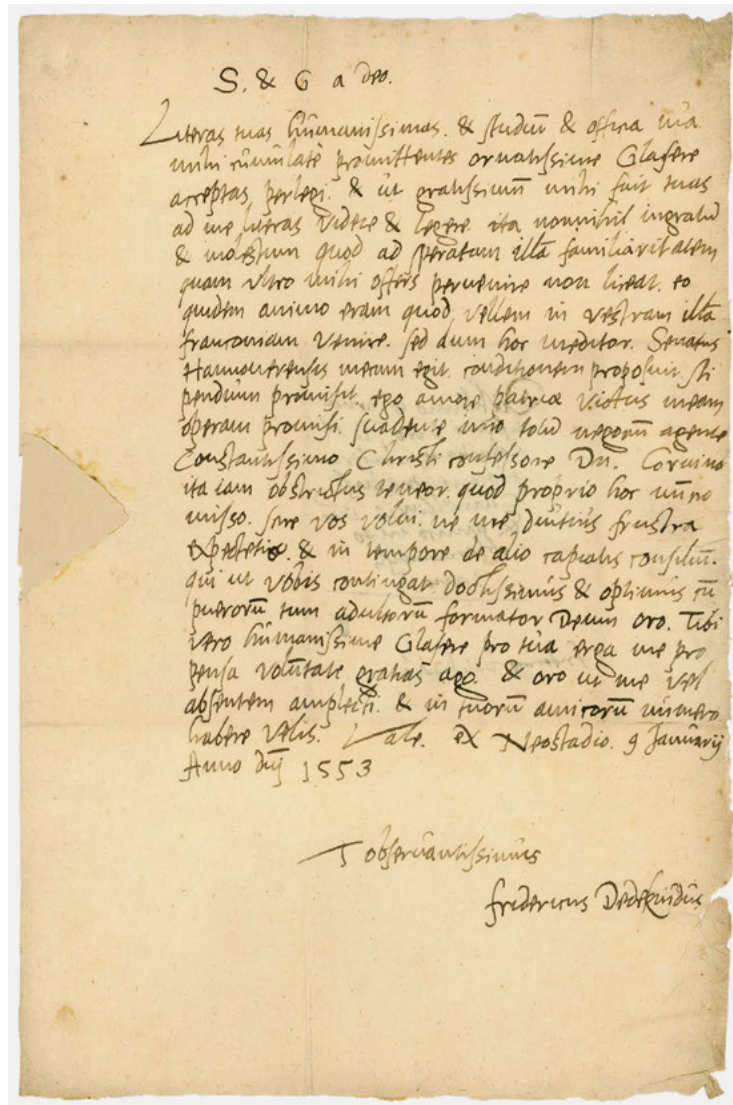 S. & G a deo.
Literas tuas humanissimas. & studiū & officia tua
mihi cumulatè promittentes ornatissime Glasere
acceptas perlegi. & ut gratissimū mihi fuit tuas
ad me literas videre & legere. ita nonnihil ingratū
& molestum quod ad speratam illā familiaritatem
quam ultro mihi offers pervenire non liceat. eo
quidem animo eram quod vellem in vestram illā
franconiam venire. sed dum hoc meditor. Senatus
Hannoverensis mecum egit. conditionem proposuit. sti
pendium promisit. ego amore patriæ victus meam
operam promisi suadente imo totū negociū agente
Constantissimo Christi confessore Dn. Corvino
ita iam obstrictus teneor. quod proprio hoc nuncio
misso. scire vos volui. ne me diutius frustra
expectetis. & in tempore de alio capiatis consiliū.
qui ut vobis contingat doctissimus & optimus cū
puerorū tum adultorū formator Deum oro. Tibi
vero humanissime Glasere pro tua erga me pro
pensa volūtate gratias ago. & oro ut me vel
absentem amplecti. & in tuorū amicorū numero
habere velis. Vale. ex Neostadio. 9 Januarij
Anno dnj 1553
T observantissimus
fridericus Dedekindus